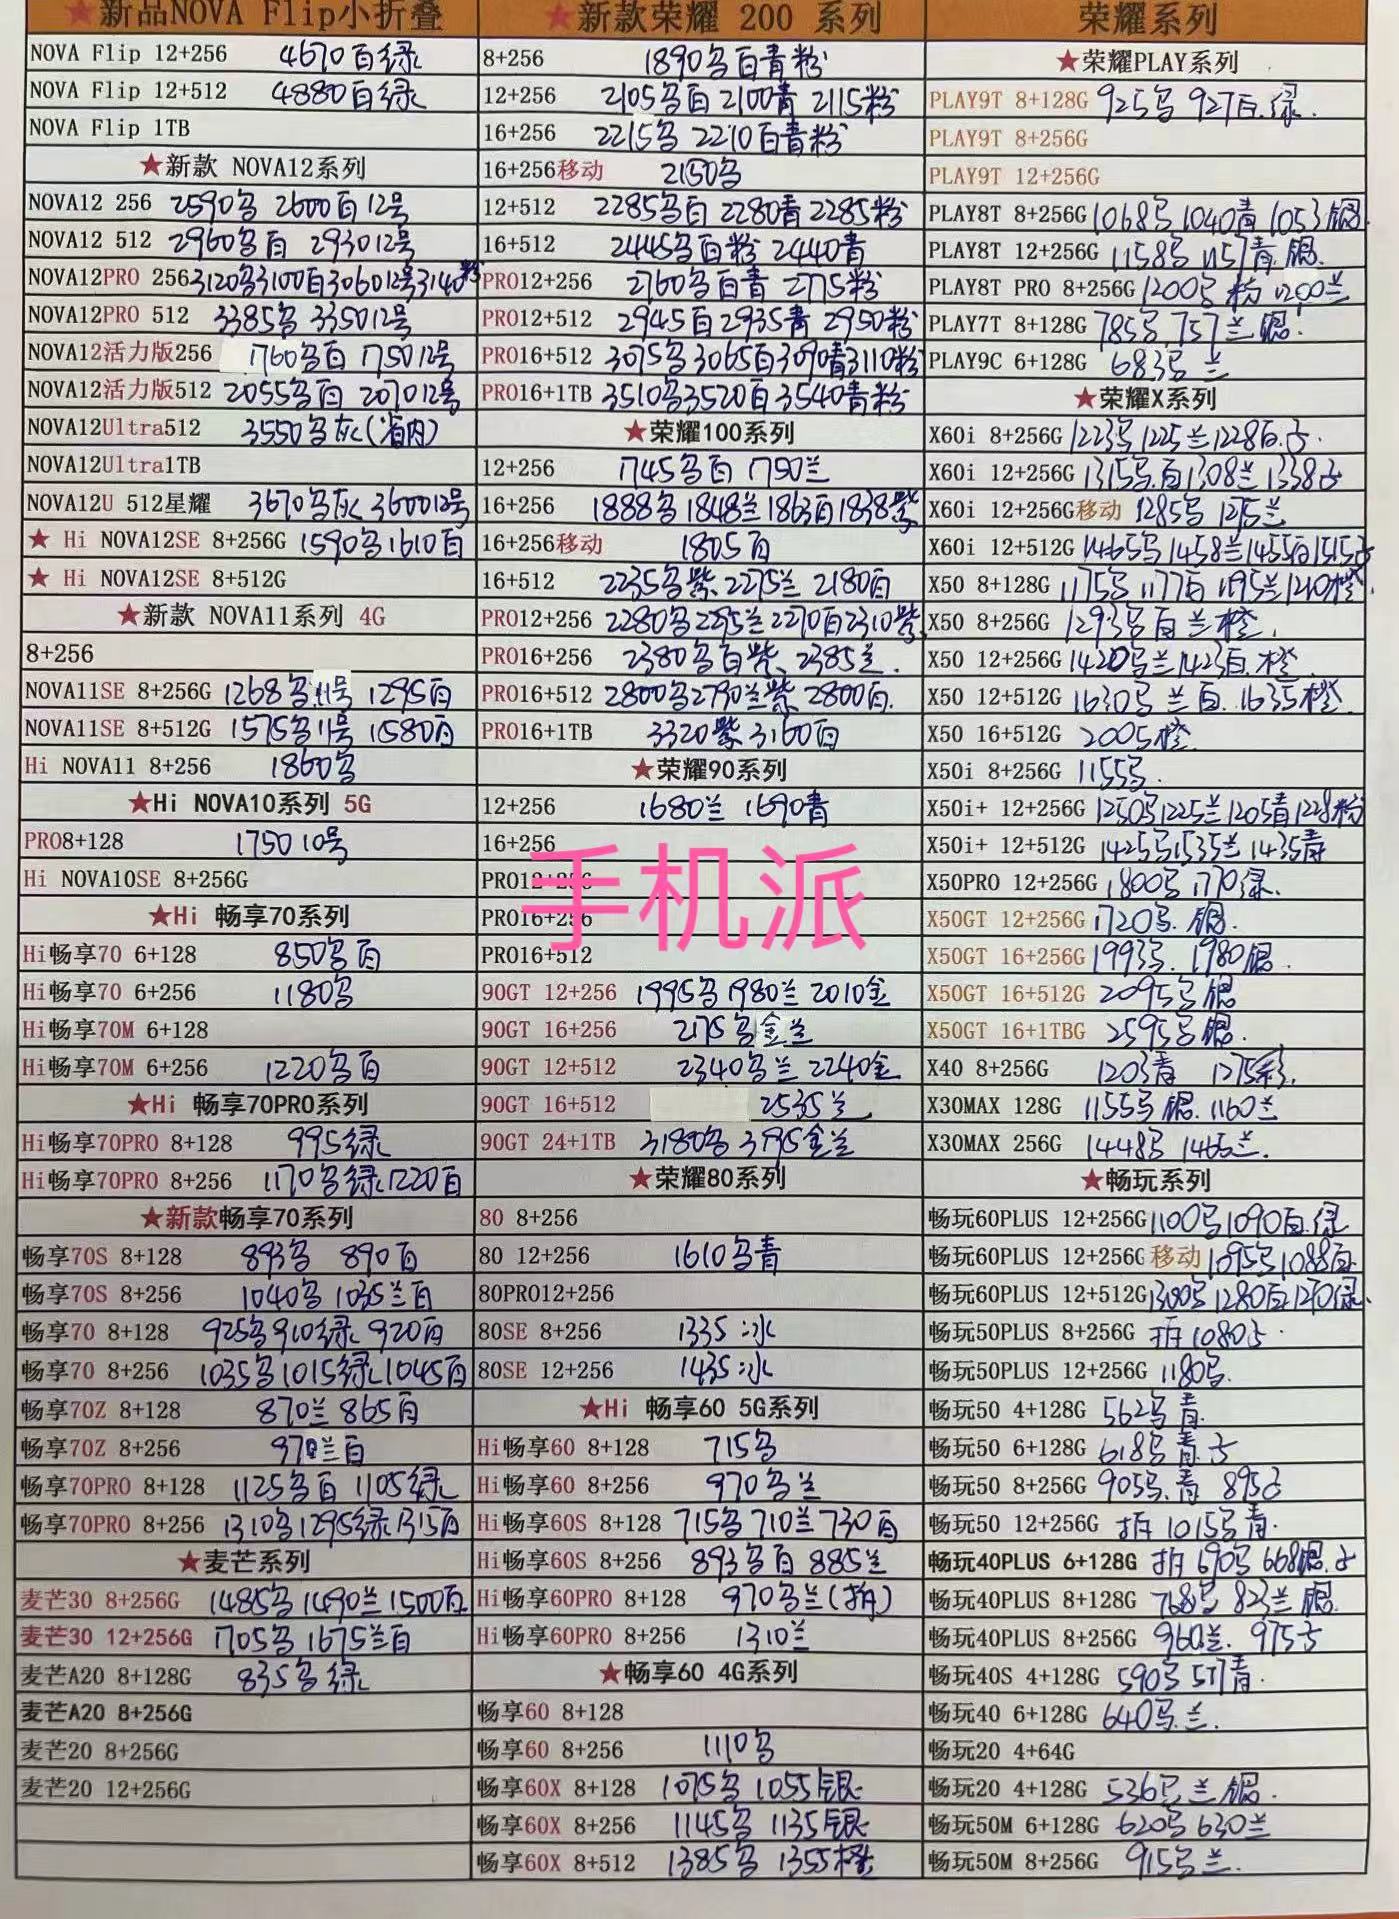 ★新品NOVA Flip小折叠
NOVA Flip 12+256 4670百绿
NOVA Flip 12+512 4880百绿
NOVA Flip 1TB
★新款 NOVA12系列
NOVA12 256 2590乌 2600百12号
NOVA12 512 2960乌百 293012号
NOVA12PRO 256 3120乌3100百306012号3140粉
NOVA12PRO 512 3385乌 335012号
NOVA12活力版256 1760乌百 175012号
NOVA12活力版512 2055乌百 207012号
NOVA12Ultra512 3550乌灰(省内)
NOVA12Ultra1TB
NOVA12U 512星耀 3670乌灰 360012号
★ Hi NOVA12SE 8+256G 1590乌1610百
★ Hi NOVA12SE 8+512G
★新款 NOVA11系列 4G
8+256
NOVA11SE 8+256G 1268乌11号 1295百
NOVA11SE 8+512G 1575乌11号 1580百
Hi NOVA11 8+256 1860乌
★Hi NOVA10系列 5G
PRO8+128 1750 10号
Hi NOVA10SE 8+256G
★Hi 畅享70系列
Hi畅享70 6+128 850乌百
Hi畅享70 6+256 1180乌
Hi畅享70M 6+128
Hi畅享70M 6+256 1220乌百
★Hi 畅享70PRO系列
Hi畅享70PRO 8+128 995绿
Hi畅享70PRO 8+256 1170乌绿1220百
★新款畅享70系列
畅享70S 8+128 893乌 890百
畅享70S 8+256 1040乌 1035兰百
畅享70 8+128 925乌910绿 920百
畅享70 8+256 1035乌1015绿1045百
畅享70Z 8+128 870兰 865百
畅享70Z 8+256 970兰百
畅享70PRO 8+128 1125乌百 1105绿
畅享70PRO 8+256 1310乌1295绿1315百
★麦芒系列
麦芒30 8+256G 1485乌1490兰1500百
麦芒30 12+256G 1705乌 1675兰百
麦芒A20 8+128G 835乌绿
麦芒A20 8+256G
麦芒20 8+256G
麦芒20 12+256G
★新款荣耀 200 系列
8+256 1890乌百青粉
12+256 2105乌百 2100青 2115粉
16+256 2215乌 2210百青粉
16+256移动 2150乌
12+512 2285乌百 2280青 2285粉
16+512 2445乌百粉 2440青
PRO12+256 2760乌百青 2775粉
PRO12+512 2945百2935青 2950粉
PRO16+512 3075乌3065百3090青3110粉
PRO16+1TB 3510乌3520百3540青粉
★荣耀100系列
12+256 1745乌百 1750兰
16+256 1888乌1848兰1863百1838紫
16+256移动 1805百
16+512 2235乌紫 2275兰 2180百
PRO12+256 2280乌2295兰2270百2310紫
PRO16+256 2380乌百紫 2385兰.
PRO16+512 2800乌2790兰紫 2800百.
PRO16+1TB 3320紫3160百
★荣耀90系列
12+256 1680兰 1690青
16+256
PRO12+256
PRO16+256
PRO16+512
手机派
90GT 12+256 1995乌1980兰 2010金
90GT 16+256 2175乌金兰
90GT 12+512 2340乌兰 2240金
90GT 16+512 2535兰
90GT 24+1TB 3180乌 3195金兰
★荣耀80系列
80 8+256
80 12+256 1610乌青
80PRO12+256
80SE 8+256 1335冰
80SE 12+256 1435冰
★Hi 畅享60 5G系列
Hi畅享60 8+128 715乌
Hi畅享60 8+256 970乌兰
Hi畅享60S 8+128 715乌710兰730百
Hi畅享60S 8+256 893乌百 885兰
Hi畅享60PRO 8+128 970乌兰(拆)
Hi畅享60PRO 8+256 1310兰
★畅享60 4G系列
畅享60 8+128
畅享60 8+256 1110乌
畅享60X 8+128 1075乌 1055银
畅享60X 8+256 1145乌 1135银
畅享60X 8+512 1385乌 1355橙
荣耀系列
★荣耀PLAY系列
PLAY9T 8+128G 925乌 927百.绿.
PLAY9T 8+256G
PLAY9T 12+256G
PLAY8T 8+256G 1068乌1040青1053银.
PLAY8T 12+256G 1158乌 1157青.银.
PLAY8T PRO 8+256G 1200乌 粉 1200兰
PLAY7T 8+128G 785乌.757兰 银.
PLAY9C 6+128G 683乌 兰
★荣耀X系列
X60i 8+256G 1223乌1225兰1228百.
X60i 12+256G 1315乌.百1308兰1338
X60i 12+256G移动 1285乌 1275兰
X60i 12+512G 1465乌1458兰1455百1515
X50 8+128G 1175乌 1177百 1195兰1210橙.
X50 8+256G 1293乌百兰橙.
X50 12+256G 1420乌兰1423百.橙.
X50 12+512G 1630乌 兰百. 1635橙.
X50 16+512G 2005橙.
X50i 8+256G 1155乌.
X50i+ 12+256G 1250乌1225兰1205青1228粉
X50i+ 12+512G 1425乌1535兰 1435青
X50PRO 12+256G 1800乌 1770绿.
X50GT 12+256G 1720乌. 银.
X50GT 16+256G 1993乌. 1980银.
X50GT 16+512G 2095乌银
X50GT 16+1TBG 2595乌银.
X40 8+256G 1203青 1275彩.
X30MAX 128G 1155乌银 1160兰
X30MAX 256G 1448乌 1465兰.
★畅玩系列
畅玩60PLUS 12+256G 1100乌1090百.绿
畅玩60PLUS 12+256G 移动 1095乌1088百.
畅玩60PLUS 12+512G 1300乌1280百1270绿.
畅玩50PLUS 8+256G 拆1080
畅玩50PLUS 12+256G 1180乌.
畅玩50 4+128G 562乌青.
畅玩50 6+128G 618乌青.
畅玩50 8+256G 905乌.青 895
畅玩50 12+256G 拆 1015乌青.
畅玩40PLUS 6+128G 拆 690乌 668银.
畅玩40PLUS 8+128G 768乌 823兰 银.
畅玩40PLUS 8+256G 960兰. 975
畅玩40S 4+128G 590乌577青.
畅玩40 6+128G 640乌.兰.
畅玩20 4+64G
畅玩20 4+128G 536乌兰 银.
畅玩50M 6+128G 620乌 630兰
畅玩50M 8+256G 915乌兰.